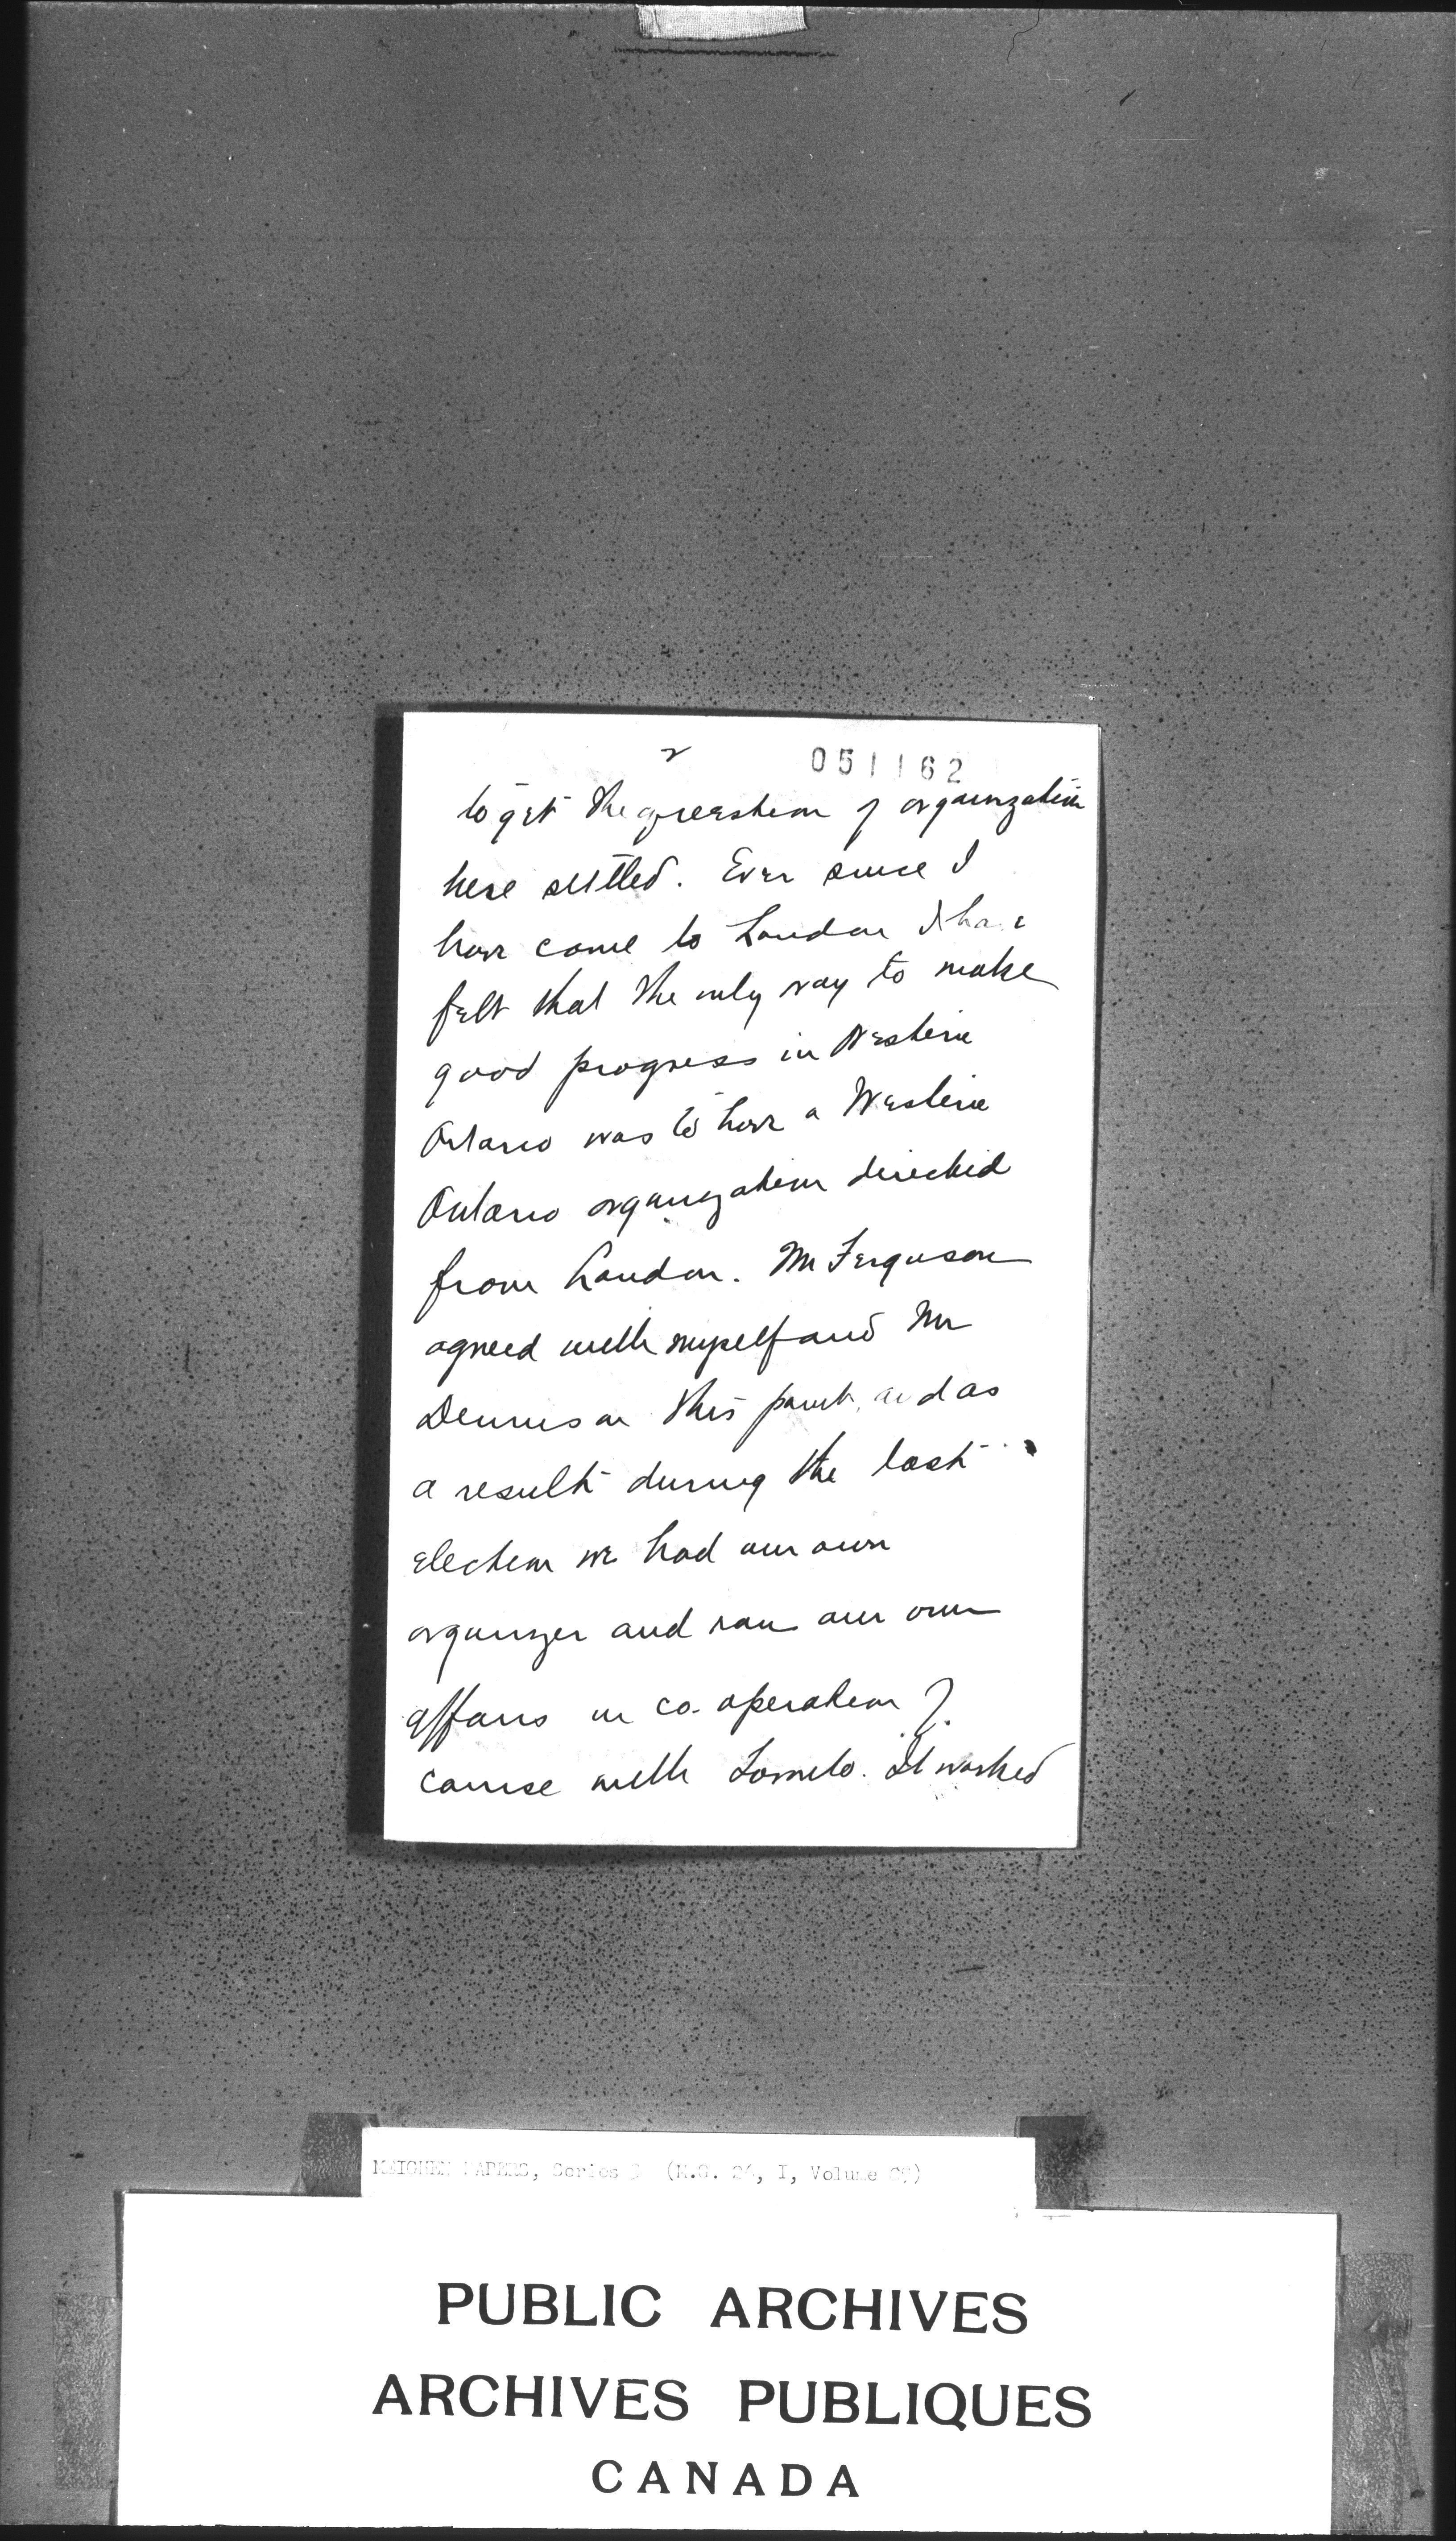 2
051162
to get the question of organization
here settled. Ever since I
have come to London I have
felt that the only way to make
good progress in Western
Ontario was to have a Western
Ontario organization directed
from London. Mr Ferguson
agreed with myself and Mr
Dennis on this point, and as
a result during the last
election we had our own
organizer and ran our own
affairs in co-operation of
course with Toronto. It worked
MEIGHEN PAPERS, Series (M.G. 26, I, Volume
PUBLIC ARCHIVES
ARCHIVES PUBLIQUES
CANADA